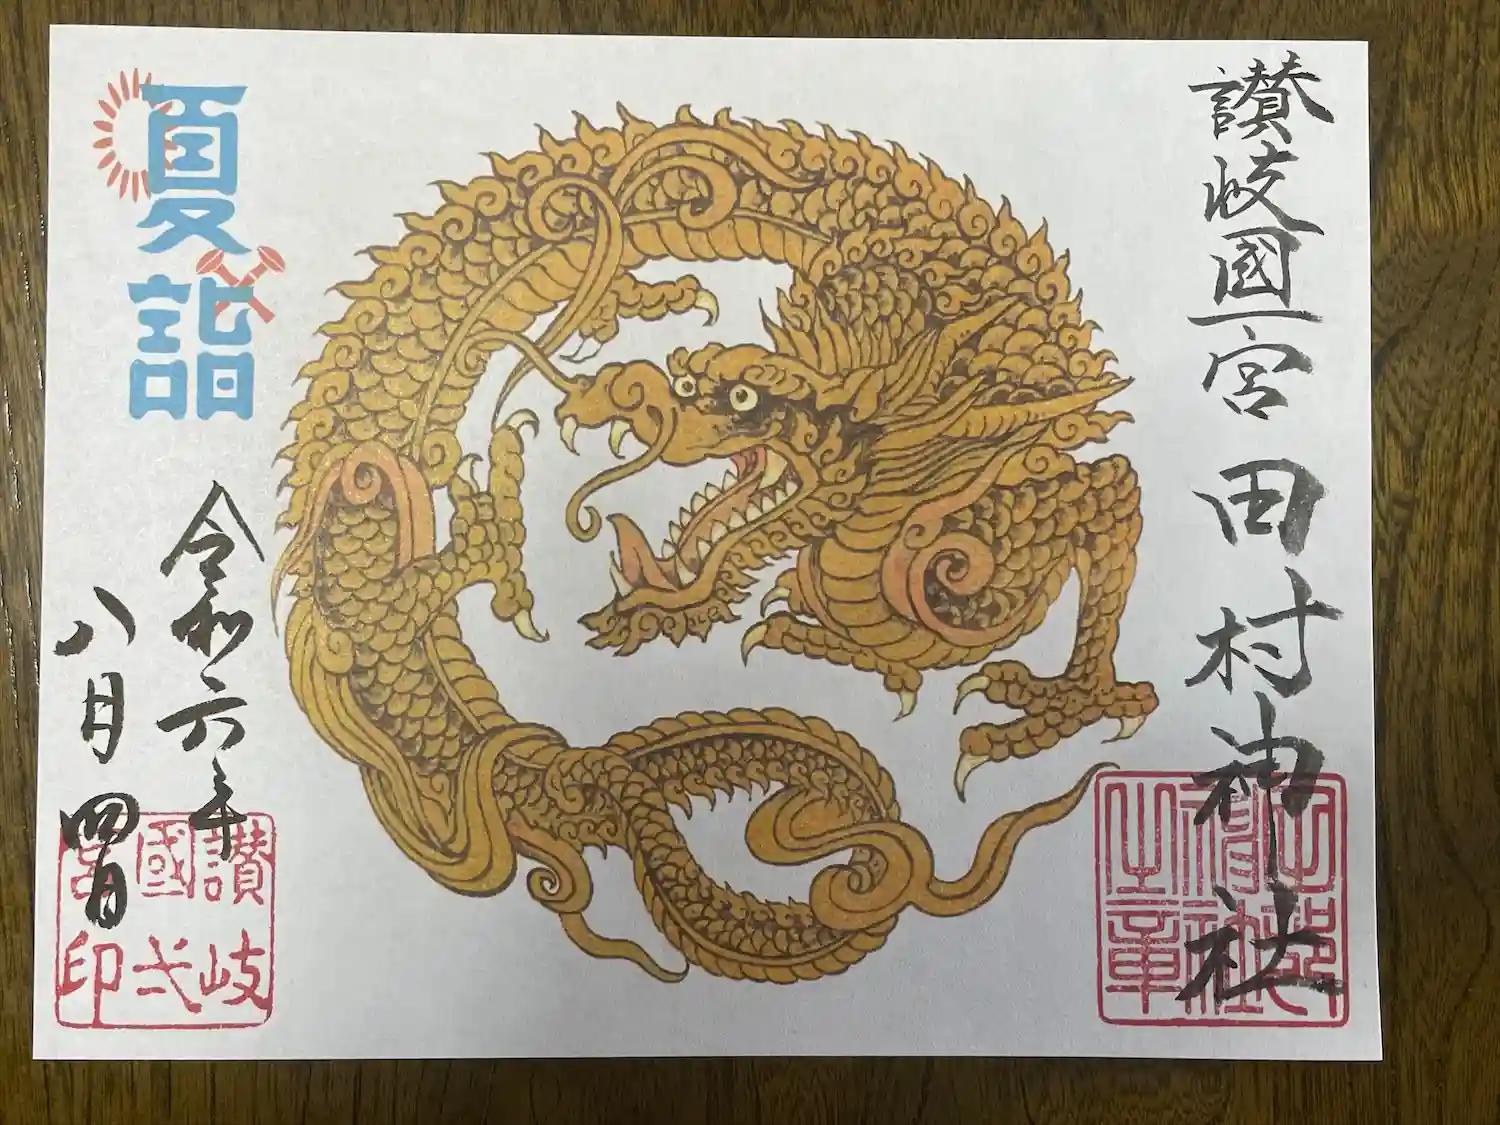 讃岐國一宮 田村神社
夏詣
令和六年
八月四日
讃岐
國弌
宮印
田村
神社
之章